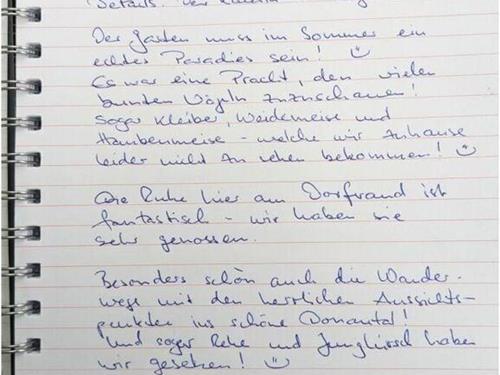 Details. Der
Der Garten muss im Sommer ein
echtes Paradies sein! ☺
Es war eine Pracht, den vielen
bunten Vögeln zuzuschauen!
Sogar Kleiber, Weidemeise und
Haubenmeise - welche wir zuhause
leider nicht zu sehen bekommen! ☺
Die Ruhe hier am Dorfrand ist
fantastisch - wir haben sie
sehr genossen.
Besonders schön auch die Wander-
wege mit den herrlichen Aussichts-
punkten ins schöne Donautal!
Und sogar Rehe und Junghirsch haben
wir gesehen! ☺